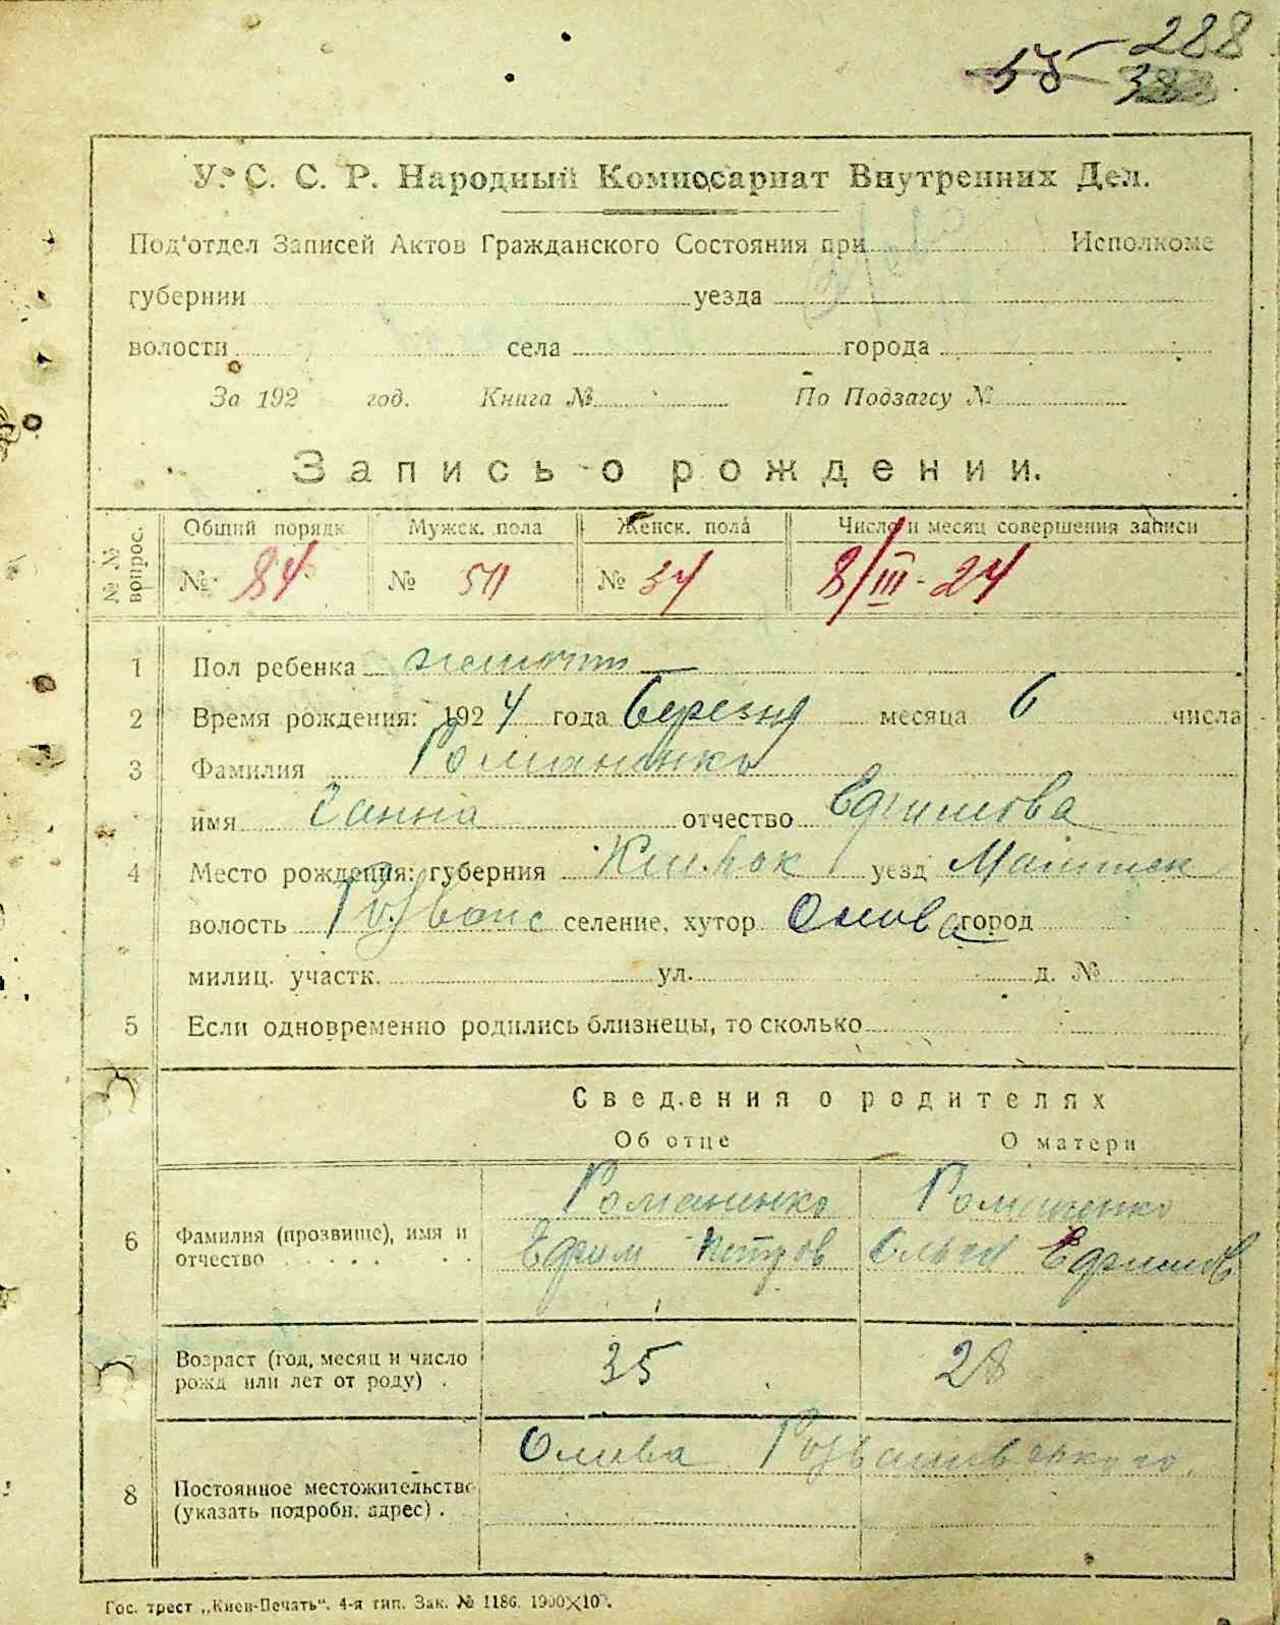 288
У. С. С. Р. Народный Комиссариат Внутренних Дел.
Под'отдел Записей Актов Гражданского Состояния при Исполкоме
губернии уезда
волости села города
За 192 год. Книга № По Подзагсу №
Запись о рождении.
№ № вопрос. Общий порядк. Мужск. пола Женск. пола Число и месяц совершения записи
№ 84 № 50 № 34 8/III - 24
1 Пол ребенка
2 Время рождения: 1924 года березня месяца 6 числа
3 Фамилия Романенко
имя Ганна отчество Ефимова
4 Место рождения: губерния уезд
волость селение, хутор Олива город
милиц. участк. ул. д. №
5 Если одновременно родились близнецы, то сколько
Сведения о родителях
Об отце О матери
Романенко Романенко
6 Фамилия (прозвище), имя и отчество Ефим Петров Ольга Ефимов
7 Возраст (год, месяц и число рожд или лет от роду) . 35 28
Олива
8 Постоянное местожительство (указать подробн. адрес) .
Гос. трест „Киев-Печать“. 4-я тип. Зак. № 1186.